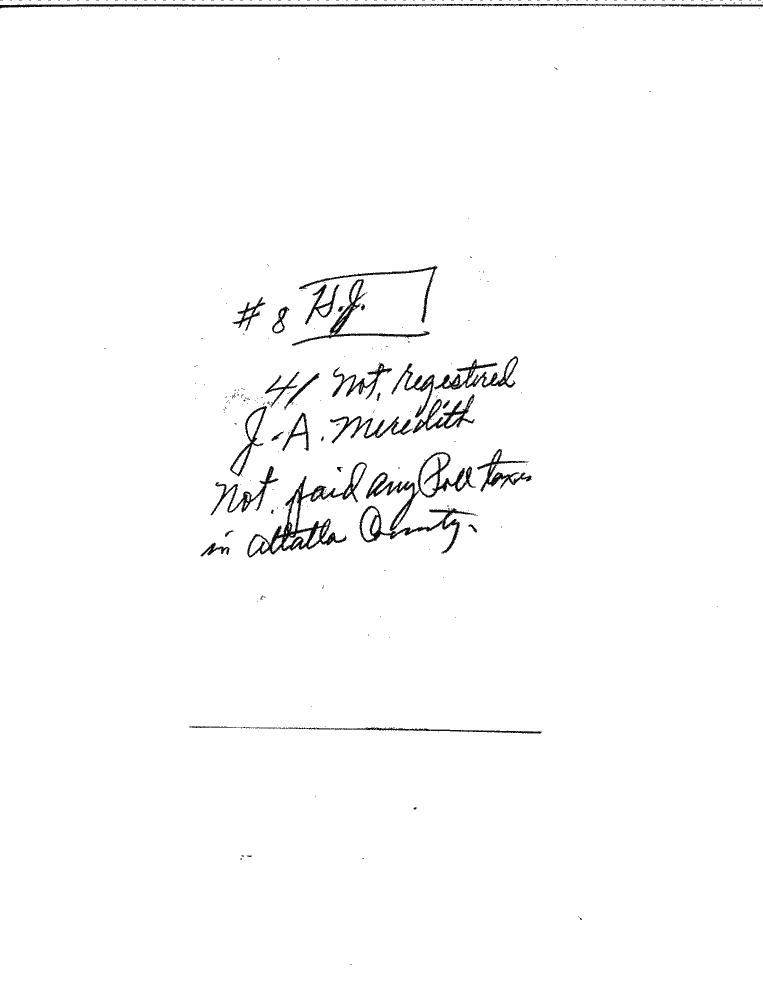 # 8 H.J.
41 Not. regestired
J-A. Meredith
Not. paid any Poll taxes
in Attalla County.